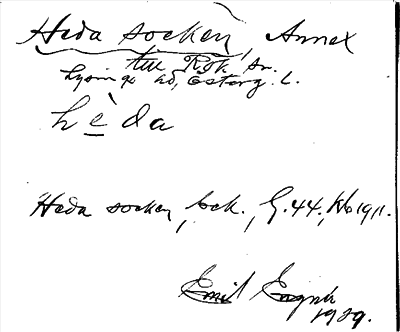 Heda socken, Annex
till Rök sn.
Lysings hd, Österg. L.
hèda
Heda socken, bek., G. 44, Kb 1911.
Emil
1929.